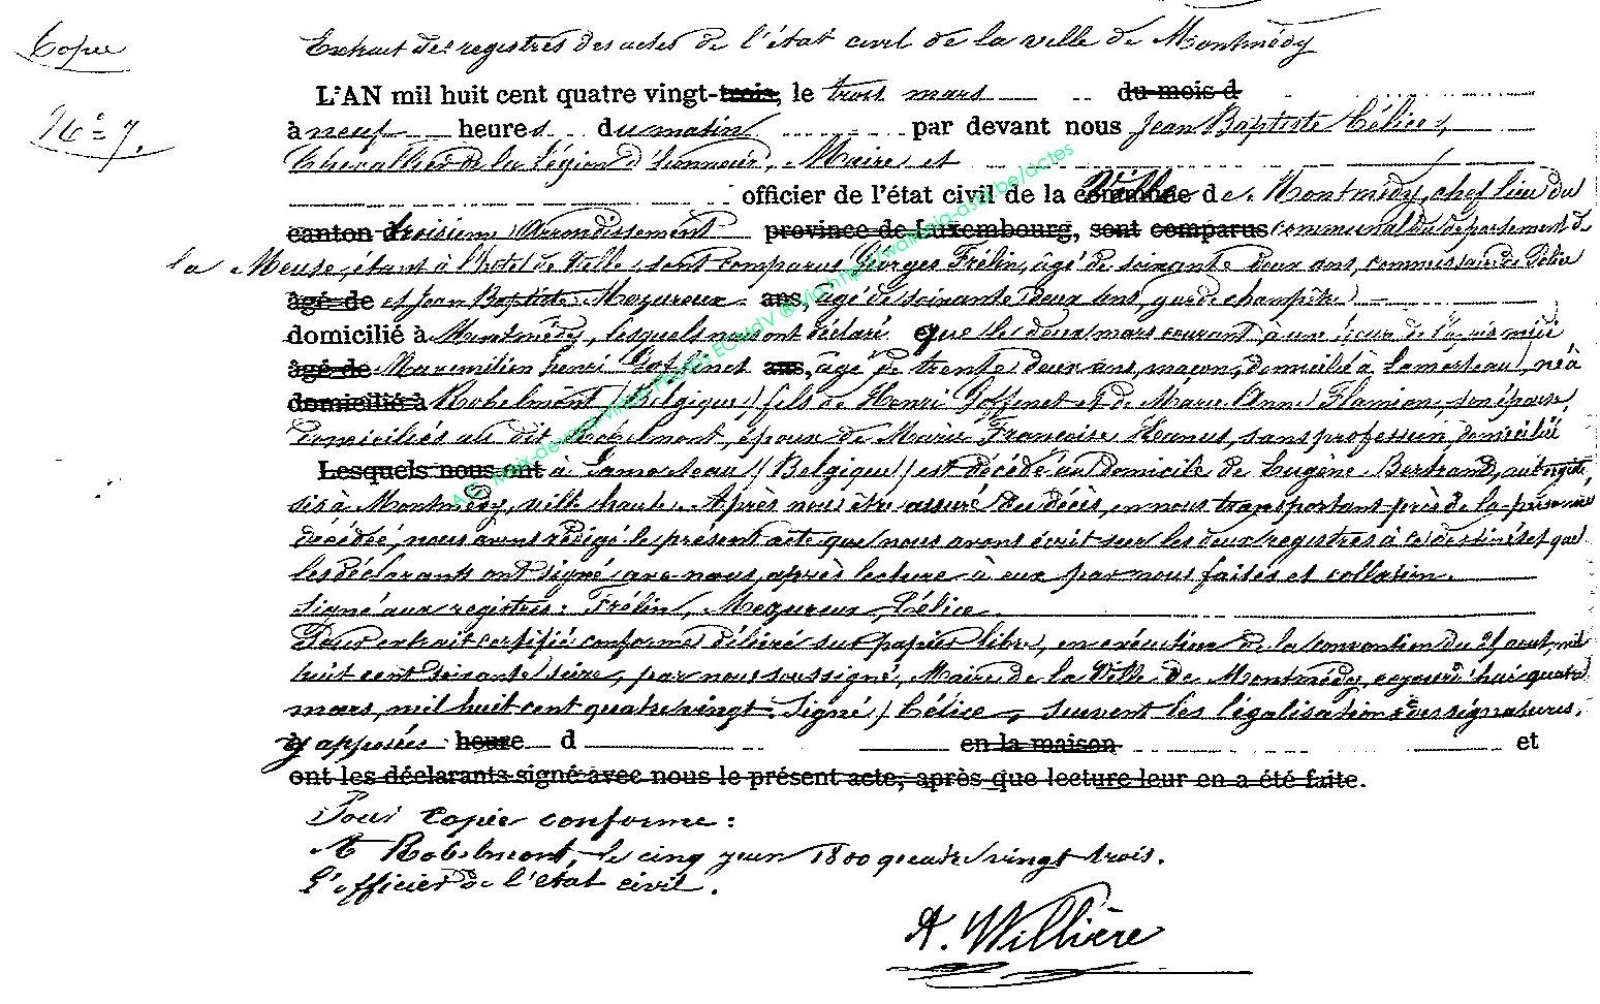 Copie
Extrait des registres des actes de l'état civil de la ville de Montmédy
L'AN mil huit cent quatre vingt-trois, le trois mars du mois d
N° 7.
à neuf heures du matin par devant nous Jean Baptiste Célice,
Chevallier de la Légion d'honneur, Maire et
officier de l'état civil de la commune Ville de Montmédy, chef lieu du
canton d troisième Arrondissement province de Luxembourg, sont comparus communal du département de
la Meuse, étant à l'hotel de Ville, sont comparus Georges Frélin, âgé de soixante deux ans, commissaire de Police
âgé de et Jean Baptiste Mezureux ans, âgé de soixante deux ans, garde champêtre
domicilié à Montmédy, lesquels nous ont déclaré que le deux mars courant à une heure de l'après midi
âgé de Maximilien Henri Goffinet ans, âgé de trente deux ans, maçon, domicilié à Lamorteau, né à
domicilié à Robelmont (Belgique) fils de Henri Goffinet et de Marie Anne Flamion, son épouse,
domiciliés au dit Robelmont, époux de Marie Françoise Hanus, sans profession, domiciliée
Lesquels nous ont à Lamorteau (Belgique) est décédé au domicile de Eugène Bertrand, aubergiste,
sis à Montmédy, ville haute. Après nous être assuré du décès, en nous transportant près de la personne
décédée, nous avons rédigé le présent acte que nous avons écrit sur les deux registres à ce destinés et que
les déclarants ont signé avec nous, après lecture à eux par nous faites et collation.
Signé aux registres: Frélin, Mezureux, Célice.
Pour extrait certifié conforme délivré sur papier libre, en exécution de la convention du 21 aout mil
huit cent soixante seize, par nous soussigné, Maire de la Ville de Montmédy, ce jourd'hui quatre
mars, mil huit cent quatre vingt. Signé / Célice, suivent les légalisations des signatures,
y apposées heure d en la maison et
ont les déclarants signé avec nous le présent acte, après que lecture leur en a été faite.
Pour copie conforme:
A Robelmont, le cinq juin 1800 quatre vingt trois.
L'officier de l'état civil.
A. Willière